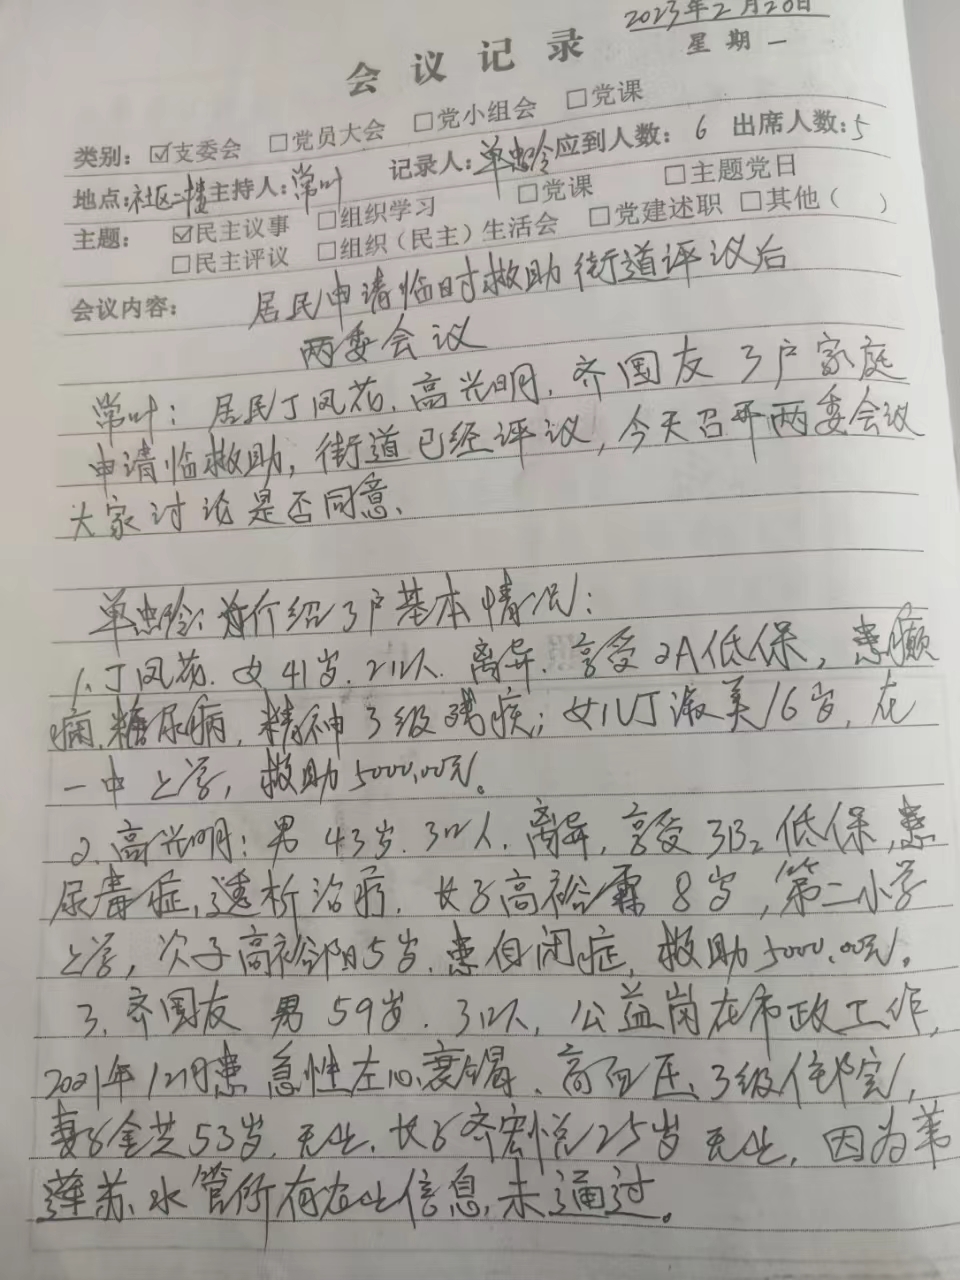 2023年2月20日
会议记录
星期一
类别：☑支委会 □党员大会 □党小组会 □党课
地点：社区二楼 主持人：常叶 记录人：单忠玲 应到人数：6 出席人数：5
主题：☑民主议事 □组织学习 □党课 □主题党日
□民主评议 □组织（民主）生活会 □党建述职 □其他（ ）
会议内容： 居民申请临时救助街道评议后
两委会议
常叶：居民丁凤花、高兴明、齐国友3户家庭
申请临救助，街道已经评议，今天召开两委会议
大家讨论是否同意、
单忠玲：介绍3户基本情况：
1、丁凤花、女41岁、2口人、离异、享受2A低保，患癫
痫、糖尿病，精神3级残疾；女儿丁淑美16岁，在
一中上学，救助5000.00元。
2、高兴明：男43岁、3口人、离异，享受3B2低保，患
尿毒症，透析治疗，长子高裕霖8岁，第二小学
上学，次子高裕阳5岁、患自闭症，救助5000.00元。
3、齐国友 男59岁、3口人，公益岗在市政工作，
2021年12月患急性左心衰竭、高血压、3级
妻子金芝53岁、无业，长子齐宏悦25岁无业，因为
水管所有在业信息，未通过。